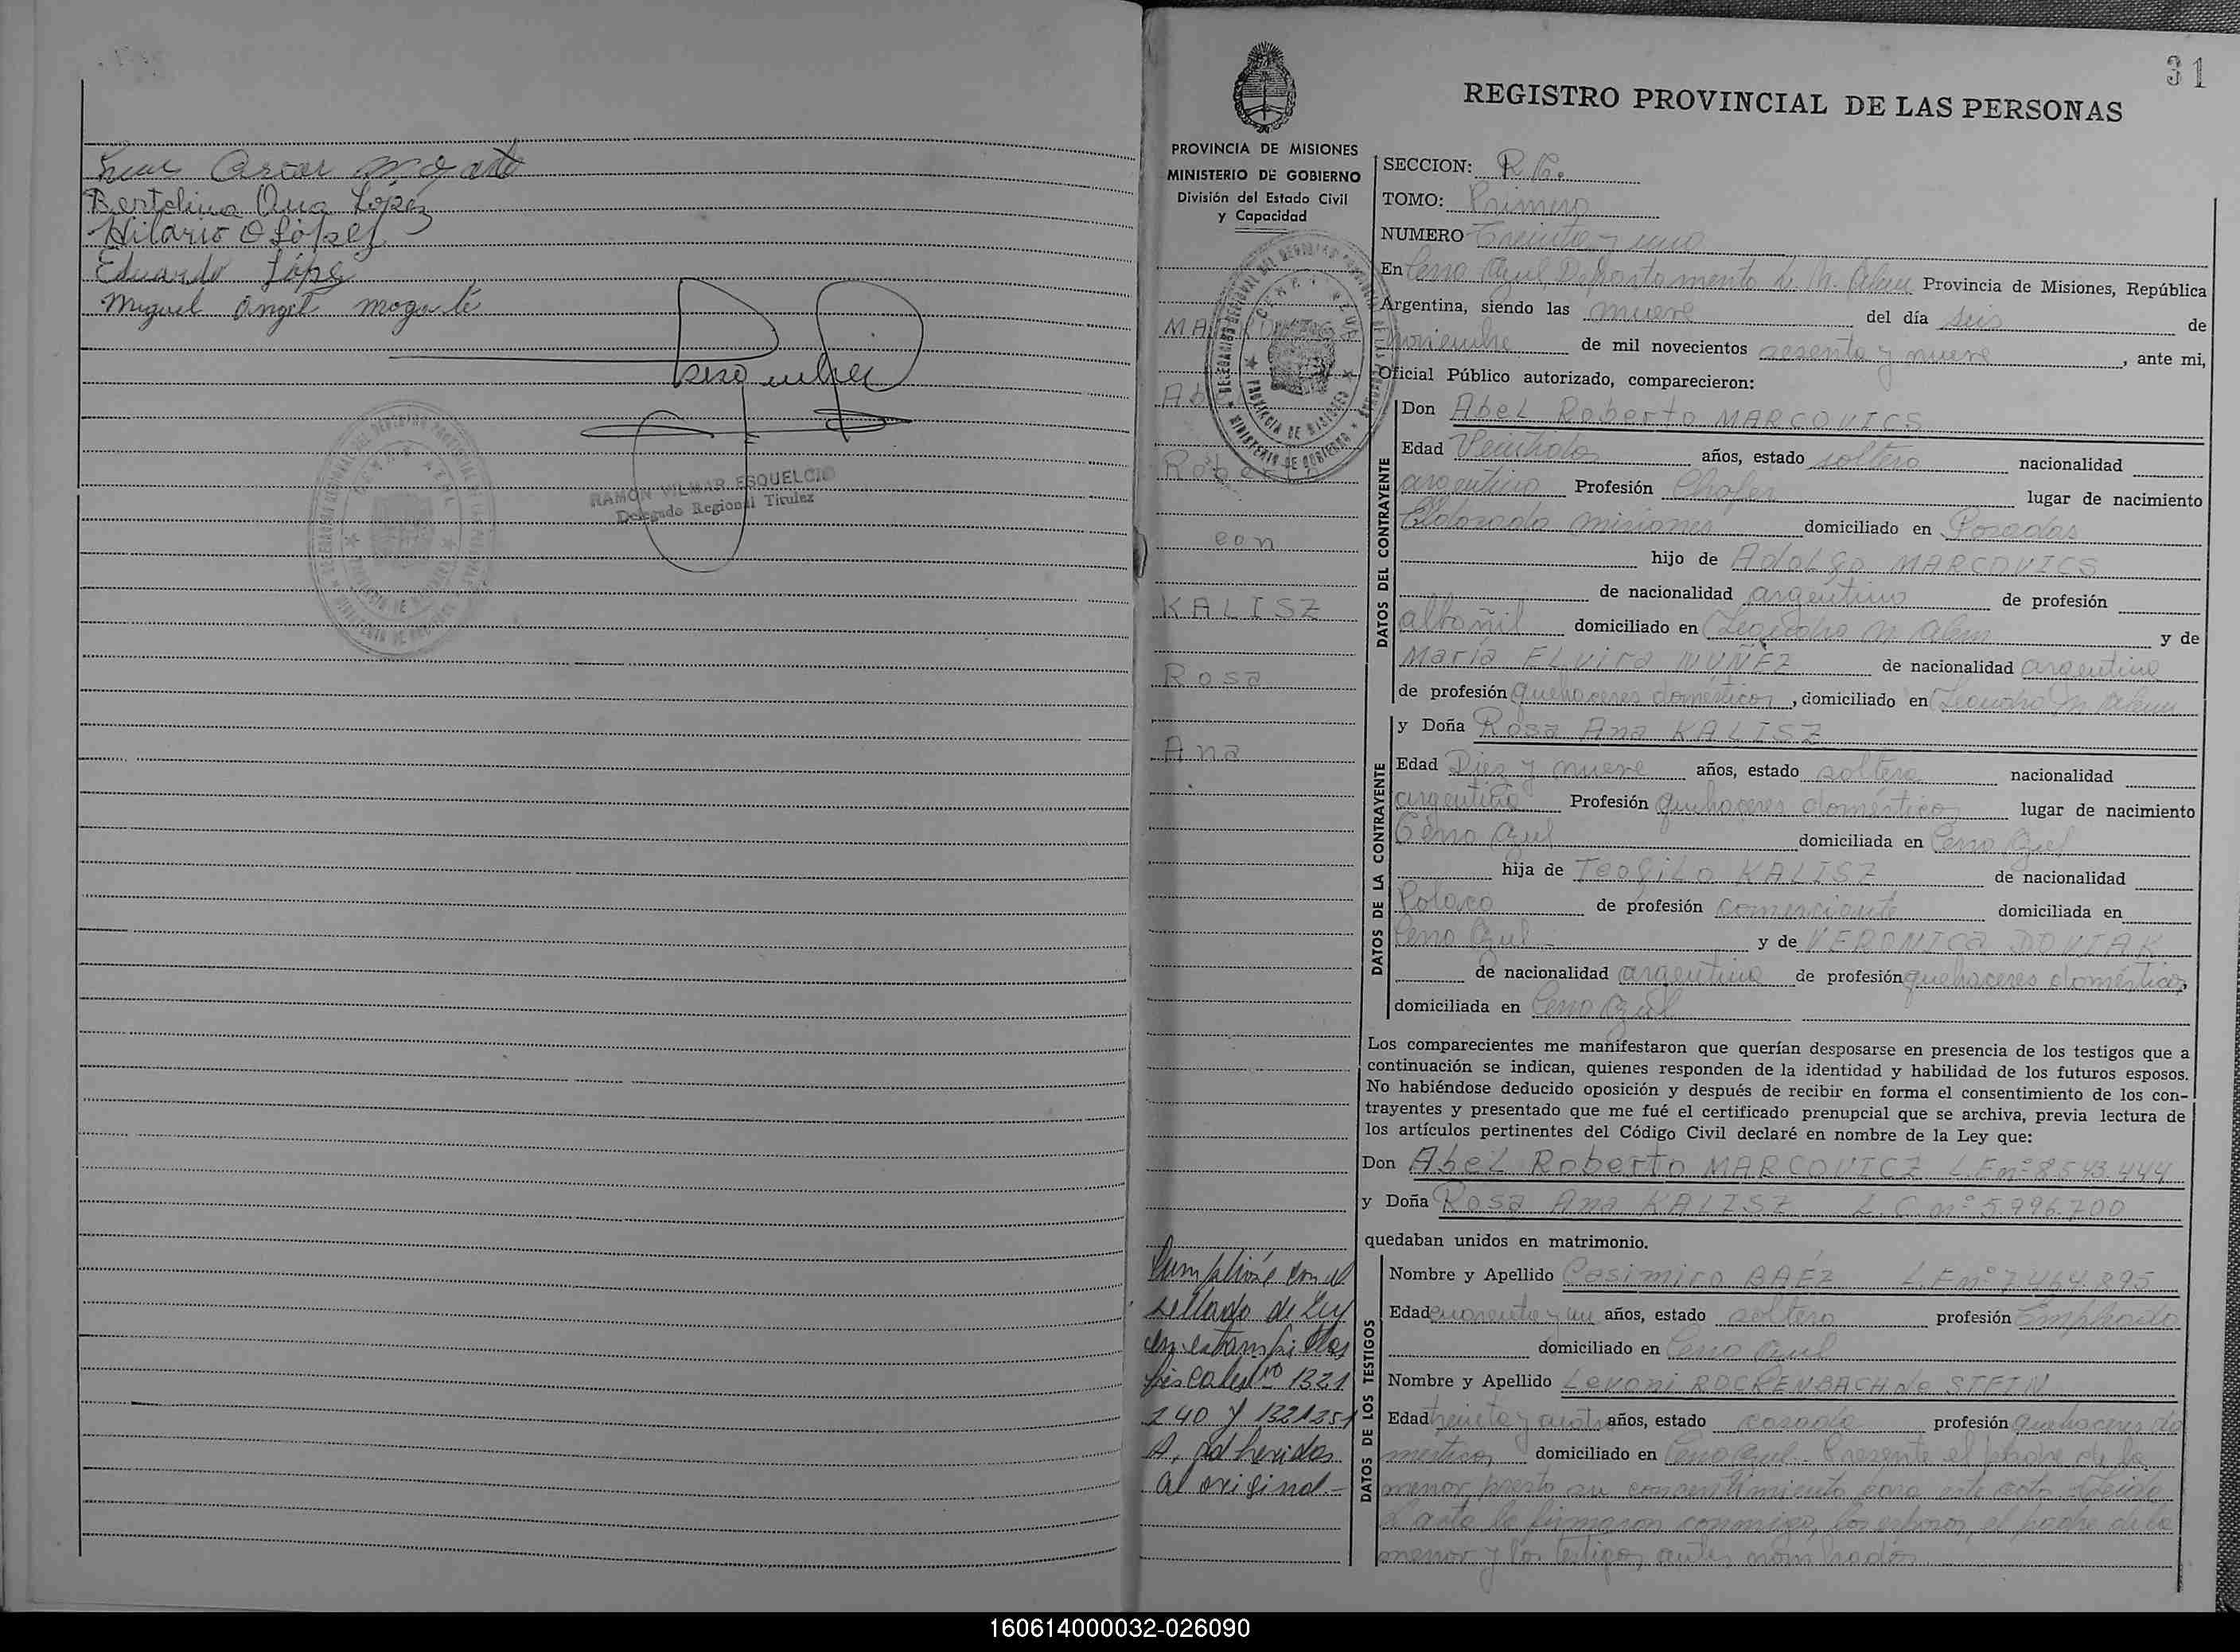 Bertolina Ana López
Hilario O López
Eduardo López
Miguel Angel
RAMON VILMAR ESQUELCIO
Delegado Regional Titular
31
REGISTRO PROVINCIAL DE LAS PERSONAS
PROVINCIA DE MISIONES
MINISTERIO DE GOBIERNO
División del Estado Civil
y Capacidad
SECCION: R.C.
TOMO: Primero
NUMERO Treinta y uno
En Cerro Azul, Departamento L. N. Alem Provincia de Misiones, República
Argentina, siendo las nueve del día seis de
noviembre de mil novecientos sesenta y nueve, ante mi,
Oficial Público autorizado, comparecieron:
Roberto
con
KALISZ
Rosa
Ana
DATOS DEL CONTRAYENTE
Don Abel Roberto MARCOVICS
Edad Veintidos años, estado soltero nacionalidad
argentino Profesión Chofer lugar de nacimiento
Eldorado Misiones domiciliado en Posadas
hijo de Adolfo MARCOVICS
de nacionalidad argentino de profesión
albañil domiciliado en Leandro N. Alem y de
María Elvira NUÑEZ de nacionalidad argentina
de profesión quehaceres domésticos, domiciliado en Leandro N. Alem
DATOS DE LA CONTRAYENTE
y Doña Rosa Ana KALISZ
Edad Diez y nueve años, estado soltera nacionalidad
argentina Profesión quehaceres domésticos lugar de nacimiento
Cerro Azul domiciliada en Cerro Azul
hija de Teofilo KALISZ de nacionalidad
Polaco de profesión comerciante domiciliada en
Cerro Azul.- y de VERONICA DOVIAK
de nacionalidad argentina de profesión quehaceres domésticos,
domiciliada en Cerro Azul
Los comparecientes me manifestaron que querían desposarse en presencia de los testigos que a
continuación se indican, quienes responden de la identidad y habilidad de los futuros esposos.
No habiéndose deducido oposición y después de recibir en forma el consentimiento de los con-
trayentes y presentado que me fué el certificado prenupcial que se archiva, previa lectura de
los artículos pertinentes del Código Civil declaré en nombre de la Ley que:
Don Abel Roberto MARCOVICZ L.E nº 8.543.444
y Doña Rosa Ana KALISZ L.C. nº 5.996.700
quedaban unidos en matrimonio.
Cumplióse con el
sellado de Ley
en estampillas
fiscales Nº 1321
240 y 1321251
A, adheridas
al original.-
DATOS DE LOS TESTIGOS
Nombre y Apellido Casimiro BAEZ L.E nº 7.464.895
Edad cuarenta y un años, estado soltero profesión Empleado
domiciliado en Cerro Azul
Nombre y Apellido Levoni ROCKENBACH de STEIN
Edad treinta y cuatro años, estado casada profesión quehaceres do
mésticos domiciliado en Cerro Azul. Presente el padre de la
menor presta su consentimiento para este acto. Leida
el acta la firmaron conmigo, los esposos, el padre de la
menor y los testigos antes nombrados
160614000032-026090